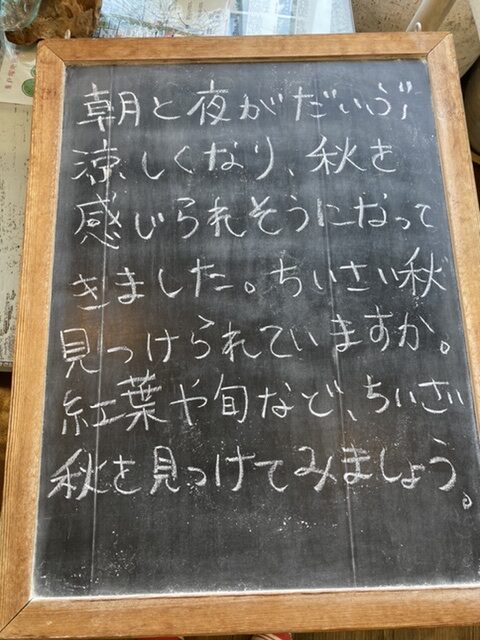 朝と夜がだいぶ
涼しくなり、秋を
感じられそうになって
きました。ちいさい秋
見つけられていますか。
紅葉や旬など、ちいさい
秋を見つけてみましょう。